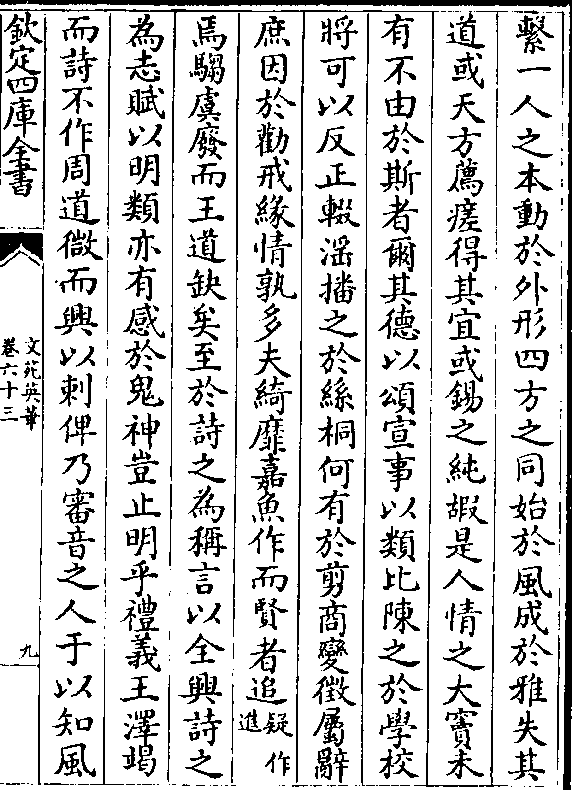 繫一人之本動於外形四方之同始於風成於雅失其
道或天方薦瘥得其宜或錫之純嘏是人情之大竇未
有不由於斯者爾其德以頌宣事以類比陳之於學校
將可以反正輟滛播之於絲桐何有於剪商變徵屬辭
庶因於勸戒緣情孰多夫綺靡嘉魚作而賢者追疑作進
焉騶虞廢而王道缺矣至於詩之為稱言以全興詩之
為志賦以明類亦有感於鬼神豈止明乎禮義王澤竭
而詩不作周道微而興以刺俾乃審音之人于以知風
欽定四庫全書
文苑英華
卷六十三
九